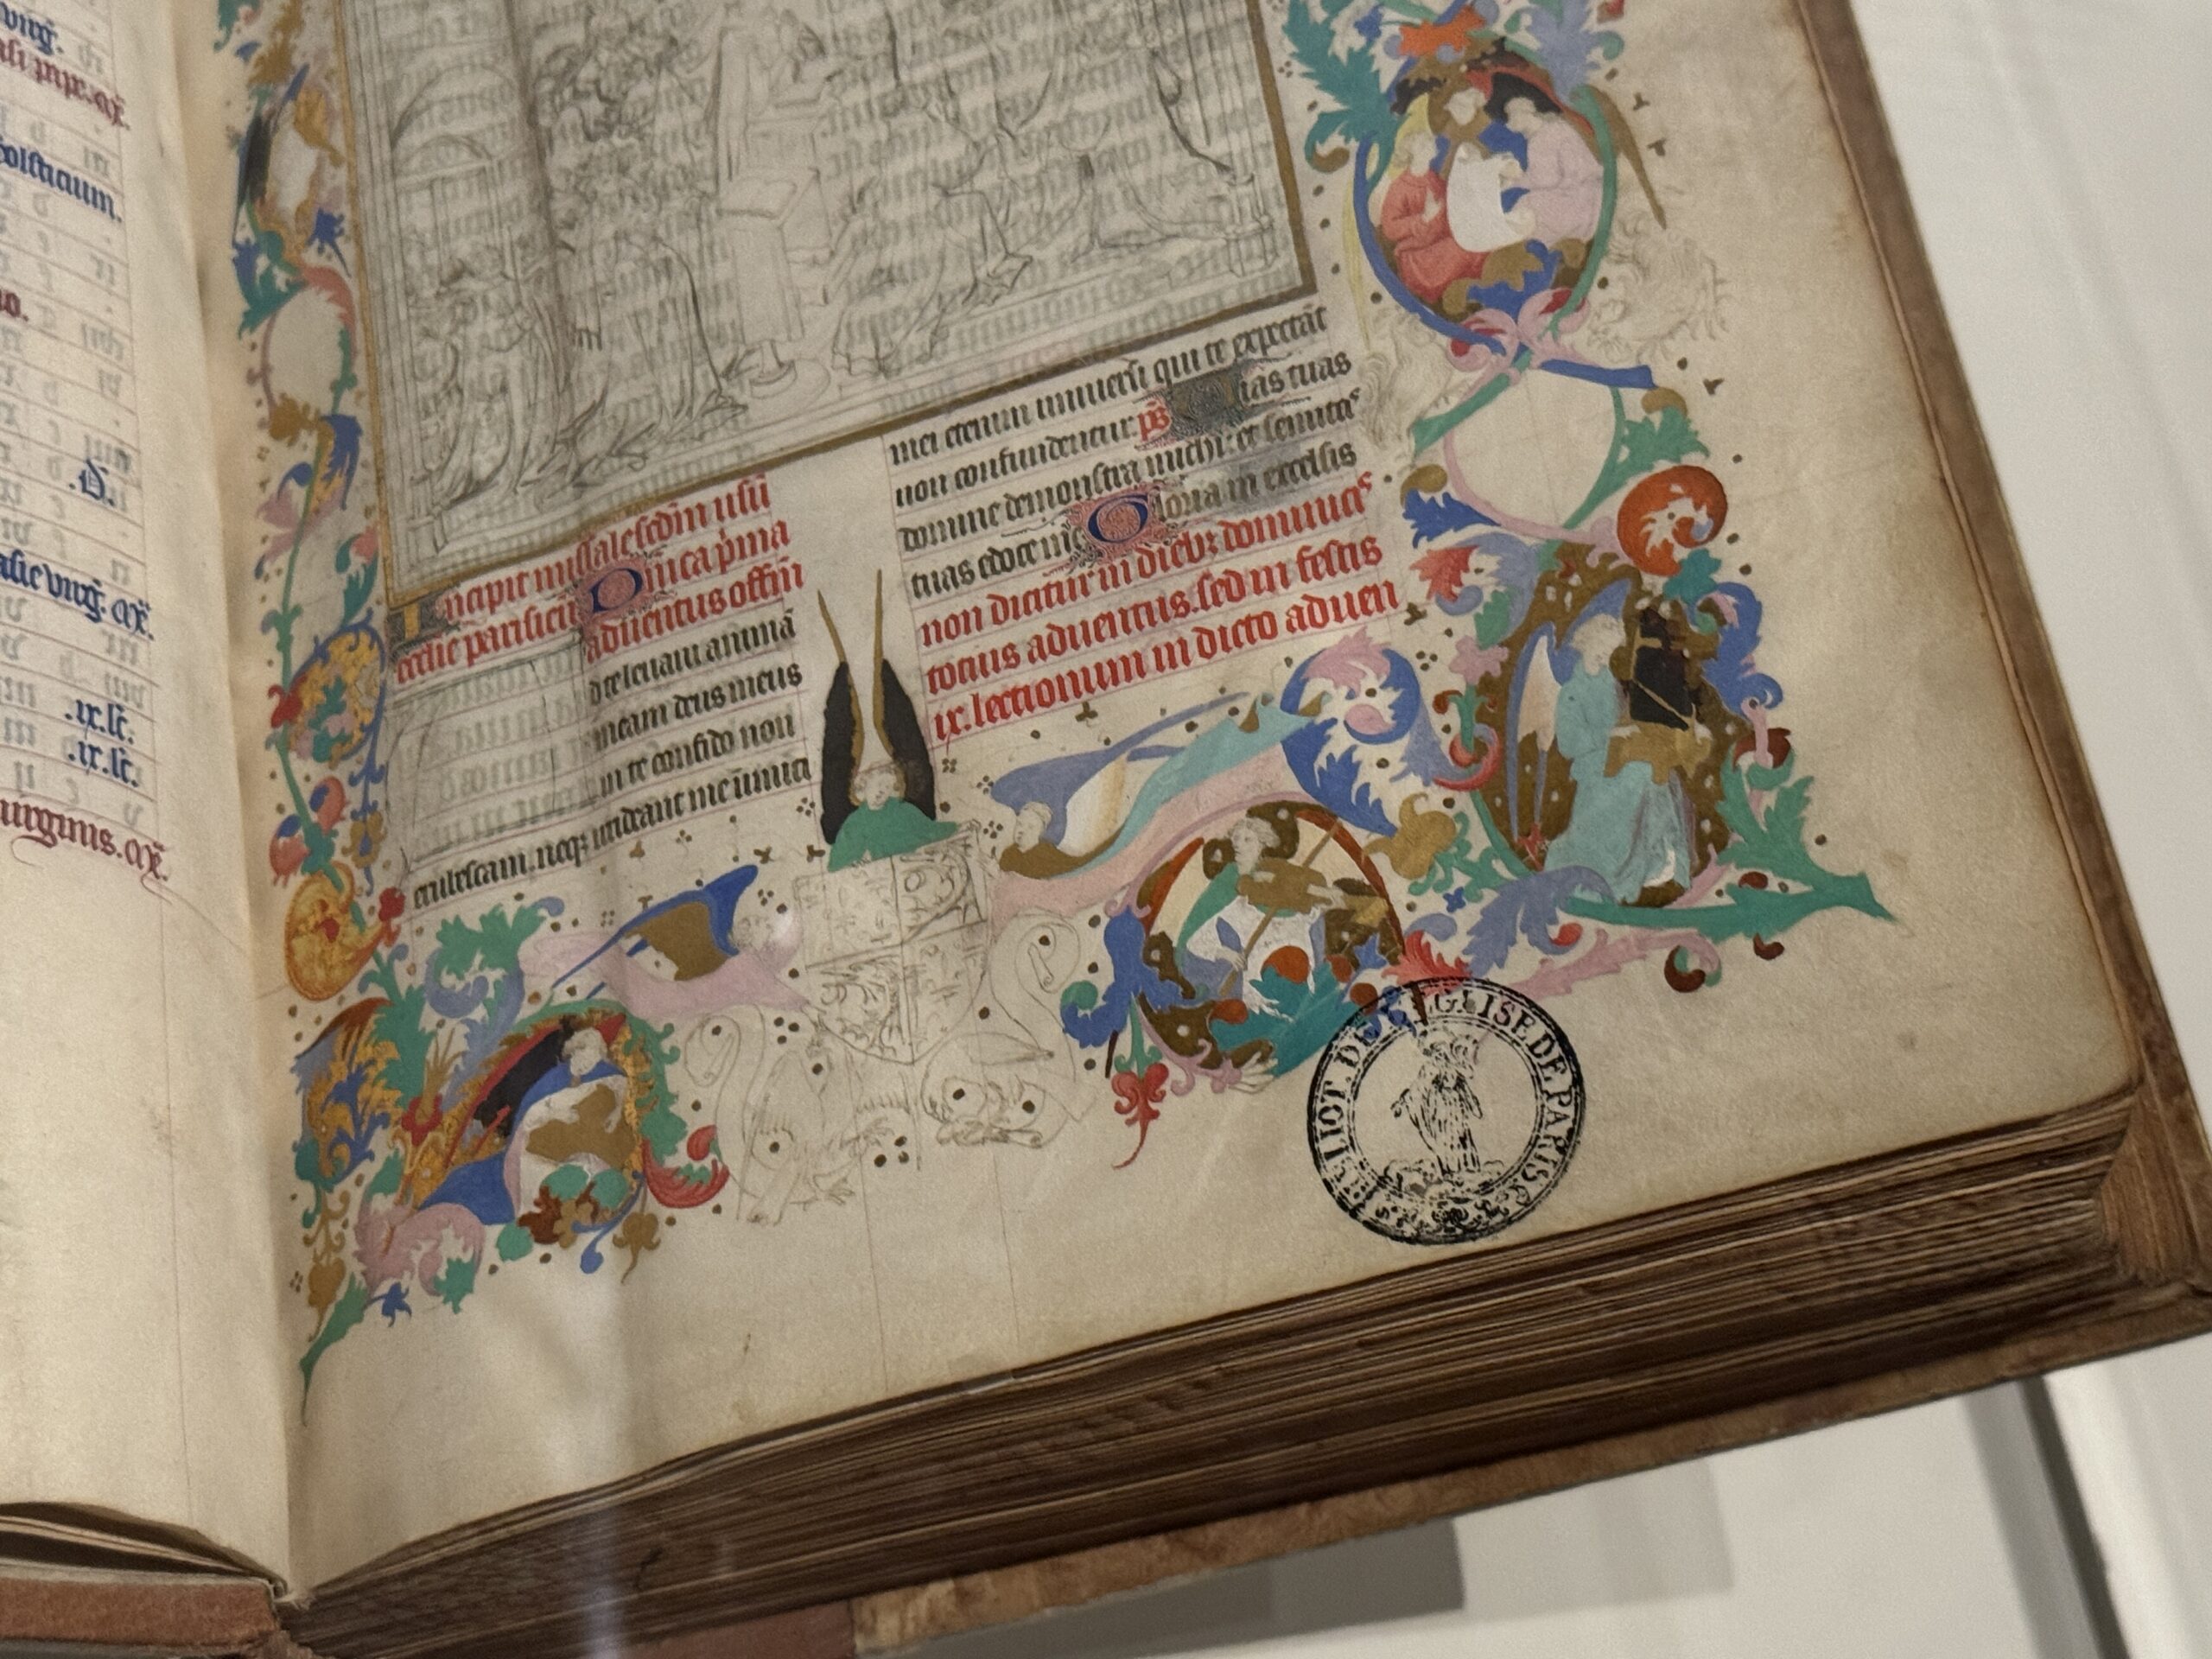 virg̃.
pape. oꝝ̃.
solsticium.
.D.
virg̃. oꝝ̃.
.ix.lc̃.
.ix.lc̃.
virginis. oꝝ̃.
Incipit missale scdm̃ usũ
ecclie parisieñ Dnica p̃ma
aduentus offm̃
d te leuaui animã
meam deus meus
in te confido non
erubescam. neqꝫ irrideant me inimici
mei etenim uniuersi qui te expectãt
non confundentur. ps̃ ias tuas
domine demonstra michi: et semitas
tuas edoce me Gloria in excelsis
non dicitur in diebꝫ dominicis
tocius aduentus. sed in festis
ix. lectionum in dicto aduen
BIBLIOT. DE L'EGLISE DE PARIS.